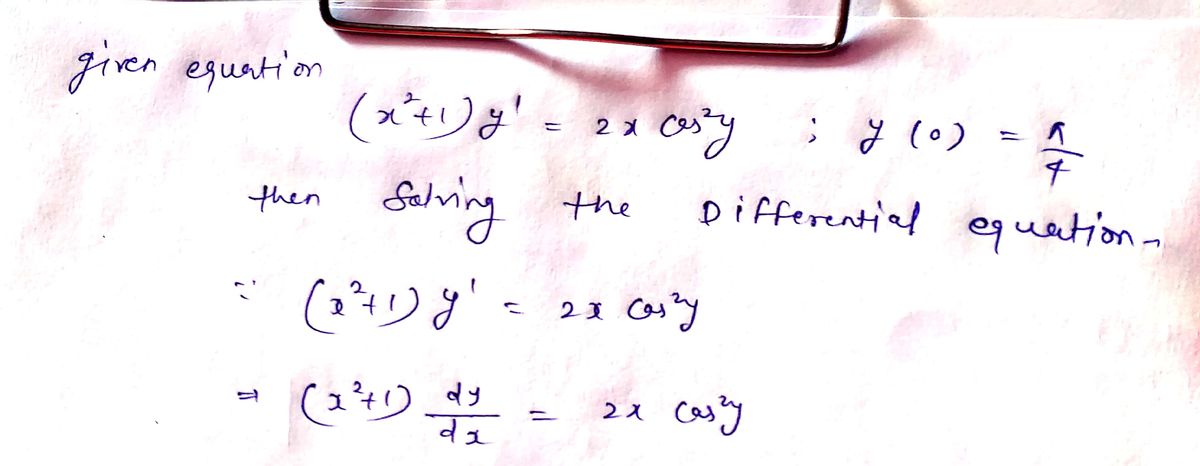 given equation
(x²+1) y' = 2x cos²y ; y(0) = π/4
then Solving the Differential equation -
∵ (x²+1) y' = 2x cos²y
⇒ (x²+1) dy/dx = 2x cos²y